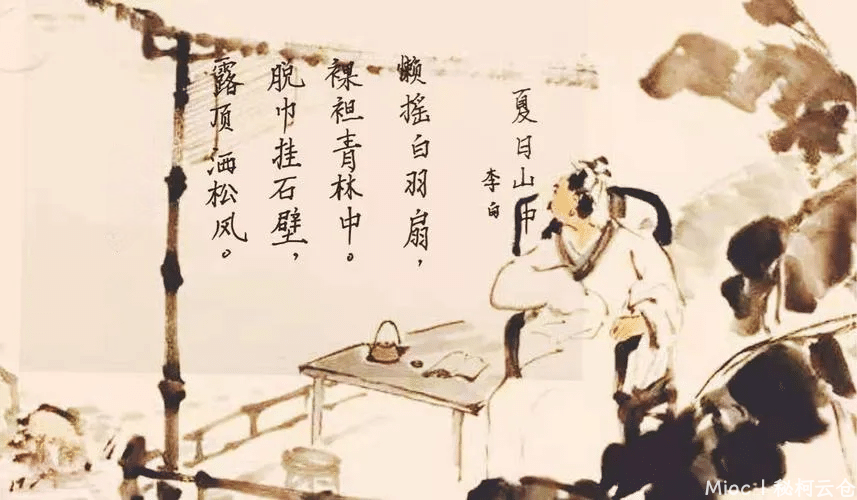 夏日山中
李白
懒摇白羽扇，
裸袒青林中。
脱巾挂石壁，
露顶洒松风。
Miac丨秘柯云仓